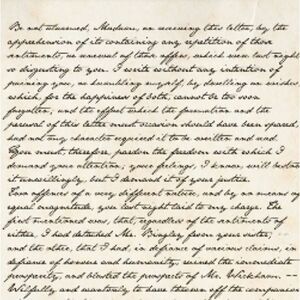 Be not alarmed, Madam, on receiving this letter, by the
apprehension of its containing any repetition of those
sentiments, or renewal of those offers, which were last night
so disgusting to you. I write without any intention of
paining you, or humbling myself, by dwelling on wishes
which, for the happiness of both, cannot be too soon
forgotten; and the effort which the formation and the
perusal of this letter must occasion should have been spared,
had not my character required it to be written and read.
You must, therefore, pardon the freedom with which I
demand your attention; your feelings, I know, will bestow
it unwillingly, but I demand it of your justice.
Two offences of a very different nature, and by no means of
equal magnitude, you last night laid to my charge. The
first mentioned was, that, regardless of the sentiments of
either, I had detached Mr. Bingley from your sister, --
and the other, that I had, in defiance of various claims, in
defiance of honour and humanity, ruined the immediate
prosperity, and blasted the prospects of Mr. Wickham. --
Wilfully and wantonly to have thrown off the companion